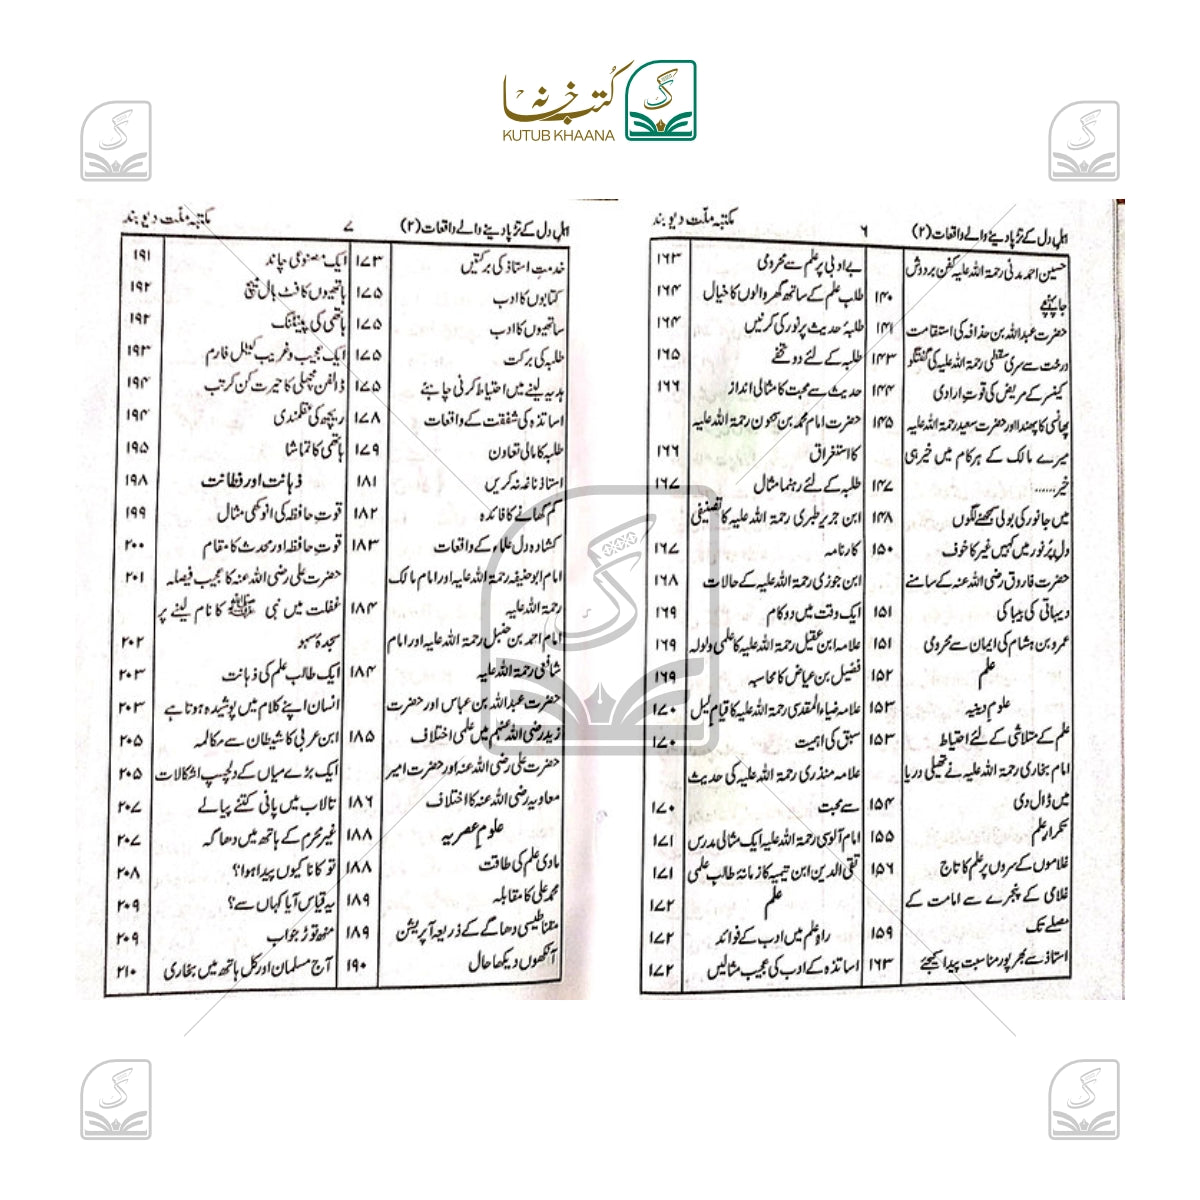 کتب خانہ
KUTUB KHAANA
اہل دل کے تڑپا دینے والے واقعات (۲) ۶ مکتبہ ملت دیوبند
حسین احمد مدنی رحمۃ اللہ علیہ کفن بردوش
جا پہنچے ۱۴۰
حضرت عبداللہ بن حذافہ کی استقامت ۱۴۱
درخت سے سری سقطی رحمۃ اللہ علیہ کی گفتگو ۱۴۳
کینسر کے مریض کی قوت ارادی ۱۴۴
پھانسی کا پھندا اور حضرت سعید رحمۃ اللہ علیہ ۱۴۵
میرے مالک کے ہر کام میں خیر ہی
خیر...... ۱۴۷
میں جانور کی بولی سمجھنے لگوں ۱۴۸
دل پُر نور میں کہیں غیر کا خوف ۱۵۰
حضرت فاروق رضی اللہ عنہ کے سامنے
دیہاتی کی بیباکی ۱۵۱
عمرو بن ہشام کی ایمان سے محرومی ۱۵۱
علم ۱۵۲
علوم دینیہ ۱۵۳
علم کے متلاشی کے لئے احتیاط ۱۵۳
امام بخاری رحمۃ اللہ علیہ نے تھیلی دریا
میں ڈال دی ۱۵۴
تکرار علم ۱۵۵
غلاموں کے سروں پر علم کا تاج ۱۵۶
غلامی کے پنجرے سے امامت کے
مصلے تک ۱۵۹
استاذ سے بھرپور مناسبت پیدا کیجئے ۱۶۳
بے ادبی پر علم سے محرومی ۱۶۳
طلب علم کے ساتھ گھر والوں کا خیال ۱۶۴
طلبۂ حدیث پر نور کی کرنیں ۱۶۴
طلبہ کے لئے دو تحفے ۱۶۵
حدیث سے محبت کا مثالی انداز ۱۶۶
حضرت امام محمد بن سحون رحمۃ اللہ علیہ
کا استغراق ۱۶۶
طلبہ کے لئے رہنما مثال ۱۶۷
ابن جریر طبری رحمۃ اللہ علیہ کا تصنیفی
کارنامہ ۱۶۷
ابن جوزی رحمۃ اللہ علیہ کے حالات ۱۶۸
ایک وقت میں دو کام ۱۶۹
علامہ ابن عقیل رحمۃ اللہ علیہ کا علمی ولولہ ۱۶۹
فضیل بن عیاض کا محاسبہ ۱۶۹
علامہ ضیاء المقدسی رحمۃ اللہ علیہ کا قیام لیل ۱۷۰
سبق کی اہمیت ۱۷۰
علامہ منذری رحمۃ اللہ علیہ کی حدیث
سے محبت ۱۷۰
امام آلوسی رحمۃ اللہ علیہ ایک مثالی مدرس ۱۷۱
تقی الدین ابن تیمیہ کا زمانۂ طالب علمی ۱۷۱
علم ۱۷۲
راہ علم میں ادب کے فوائد ۱۷۲
اساتذہ کے ادب کی عجیب مثالیں ۱۷۲
اہل دل کے تڑپا دینے والے واقعات (۲) ۷ مکتبہ ملت دیوبند
خدمت استاذ کی برکتیں ۱۷۳
کتابوں کا ادب ۱۷۵
ساتھیوں کا ادب ۱۷۵
طلبہ کی برکت ۱۷۵
ہدیہ لینے میں احتیاط کرنی چاہئے ۱۷۵
اساتذہ کی شفقت کے واقعات ۱۷۸
طلبہ کا مالی تعاون ۱۷۹
استاذ ناغہ نہ کریں ۱۸۱
کم کھانے کا فائدہ ۱۸۲
کشادہ دل علماء کے واقعات ۱۸۳
امام ابو حنیفہ رحمۃ اللہ علیہ اور امام مالک
رحمۃ اللہ علیہ ۱۸۴
امام احمد بن حنبل رحمۃ اللہ علیہ اور امام
شافعی رحمۃ اللہ علیہ ۱۸۴
حضرت عبداللہ بن عباس اور حضرت
زید رضی اللہ عنہم میں علمی اختلاف ۱۸۵
حضرت علی رضی اللہ عنہ اور حضرت امیر
معاویہ رضی اللہ عنہ کا اختلاف ۱۸۶
علوم عصریہ ۱۸۸
مادی علم کی طاقت ۱۸۸
محمد علی کا مقابلہ ۱۸۹
مقناطیسی دھاگے کے ذریعہ آپریشن ۱۸۹
آنکھوں دیکھا حال ۱۹۰
ایک مصنوعی چاند ۱۹۱
ہاتھیوں کا فٹ بال میچ ۱۹۲
ہاتھی کی پینٹنگ ۱۹۲
ایک عجیب و غریب کیٹل فارم ۱۹۳
ڈالفن مچھلی کا حیرت کن کرتب ۱۹۴
ریچھ کی عقلمندی ۱۹۴
ہاتھی کا تماشا ۱۹۵
ذہانت اور فطانت ۱۹۸
قوت حافظہ کی انوکھی مثال ۱۹۹
قوت حافظہ اور محدث کا مقام ۲۰۰
حضرت علی رضی اللہ عنہ کا عجیب فیصلہ ۲۰۱
غفلت میں نبی ﷺ کا نام لینے پر
سجدۂ سہو ۲۰۲
ایک طالب علم کی ذہانت ۲۰۳
انسان اپنے کلام میں پوشیدہ ہوتا ہے ۲۰۳
ابن عربی کا شیطان سے مکالمہ ۲۰۵
ایک بڑے میاں کے دلچسپ اشکالات ۲۰۵
تالاب میں پانی کتنے پیالے ۲۰۷
غیر محرم کے ہاتھ میں دھاگہ ۲۰۷
تو کانا کیوں پیدا ہوا؟ ۲۰۸
یہ قیاس آیا کہاں سے؟ ۲۰۹
منھ توڑ جواب ۲۰۹
آج مسلمان اور کل ہاتھ میں بخاری ۲۱۰